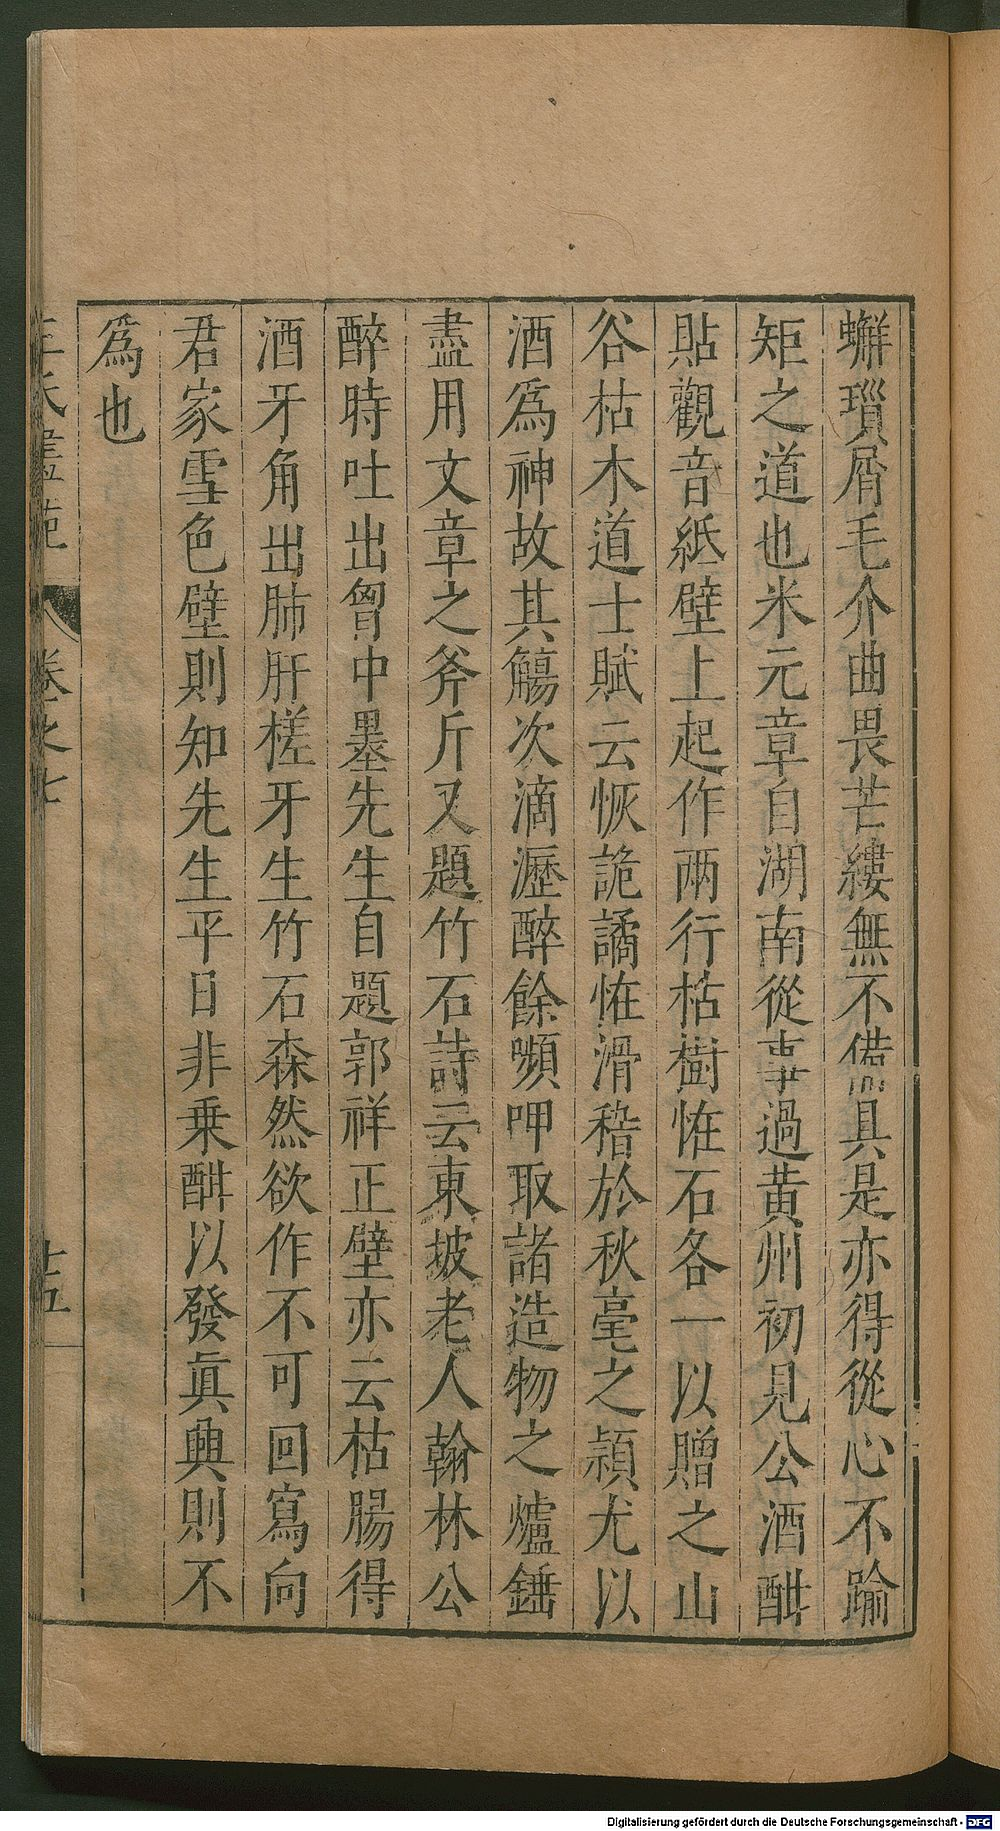 蠏瑣屑毛介曲畏芒縷無不備具是亦得從心不踰
矩之道也米元章自湖南從事過黃州初見公酒酣
貼觀音紙壁上起作兩行枯樹恠石各一以贈之山
谷枯木道士賦云恢詭譎恠滑稽於秋毫之頴尤以
酒爲神故其觴次滴瀝醉餘嚬呷取諸造物之爐錘
盡用文章之斧斤又題竹石詩云東坡老人翰林公
醉時吐出胷中墨先生自題郭祥正壁亦云枯腸得
酒牙角出肺肝槎牙生竹石森然欲作不可回寫向
君家雪色壁則知先生平日非乗酣以發眞興則不
爲也
王氏畫苑 卷之七 十五
Digitalisierung gefördert durch die Deutsche Forschungsgemeinschaft - DFG